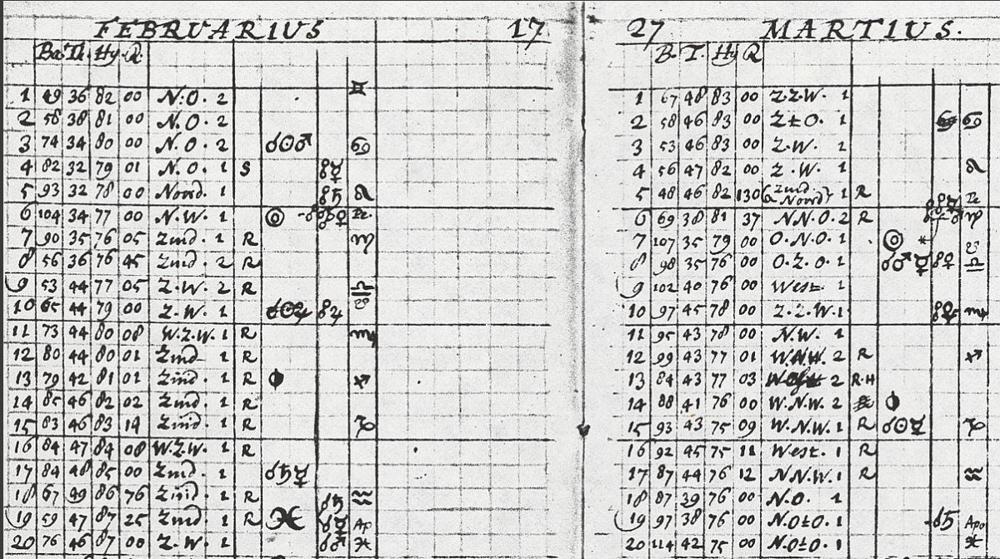 FEBRUARIUS 17
Ba. Th. Hy. R.
1 49 36 82 00 N.O. 2 ♊
2 56 38 81 00 N.O. 2
3 74 34 80 00 N.O. 2 ☌☉♂ ♋
4 82 32 79 01 N.O. 1 S ☍☿
5 93 32 78 00 Noord. 1 ☍♄ ♌
6 104 34 77 00 N.W. 1
7 90 35 76 05 Zuid. 1 R ♍
8 56 36 76 45 Zuid. 2 R
9 53 44 77 05 Z.W. 2 R ♎
10 65 44 79 00 Z.W. 1 ☍♃ ☋
11 73 44 80 08 W.Z.W. 1 R ♏
12 80 44 80 01 Zuid. 1 R
13 79 42 81 01 Zuid. 1 R ◑ ♐
14 85 46 82 02 Zuid. 1 R
15 83 46 83 14 Zuid. 1 R ♑
16 84 47 84 08 W.Z.W. 1 R
17 84 48 85 00 Zuid. 1 ☌♄☿
18 67 49 86 76 Zuid. 1 R ☌♄ ♒
19 59 47 87 25 Zuid. 1 R ♓ ☌☿ Ap
20 76 46 87 00 Z.W. 1 ☌♂ ♓
27 MARTIUS.
B. T. Hy R
1 67 48 83 00 Z.Z.W. 1
2 58 46 83 00 Z.t.O. 1 ♋
3 53 46 83 00 Z.W. 1
4 56 47 82 00 Z.W. 1 ♌
5 48 46 82 130 Zuid Noord 1 R
6 69 38 81 37 N.N.O. 2 R ♍
7 107 35 79 00 O.N.O. 1 ☋
8 98 35 76 00 O.Z.O. 1 ☌♂☿ ☍♀ ♎
9 102 40 76 00 West. 1
10 97 45 78 00 Z.Z.W. 1 ♏
11 95 43 78 00 N.W. 1
12 99 43 77 01 W.N.W. 2 R ♐
13 84 43 77 03 2 R.H
14 88 41 76 00 W.N.W. 2 ◑
15 93 43 75 09 W.N.W. 1 R ☌☉☿ ♑
16 92 45 75 11 West. 1 R
17 87 44 76 12 N.N.W. 1 R ♒
18 87 39 76 00 N.O. 1
19 97 38 76 00 N.O.t.O. 1 ☌♄ Apo
20 114 42 75 00 N.O.t.O. 1 ♓